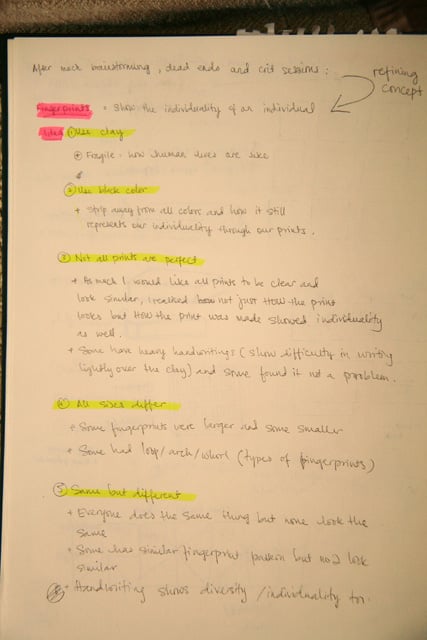 After much brainstorming, dead ends and crit sessions :
refining
concept
Fingerprints = Show the individuality of an individual
Idea ① Use clay
+ Fragile - how human lives are like
② Use black color
+ Strip away from all colors and how it still
represents our individuality through our prints.
③ Not all prints are perfect
+ As much I would like all prints to be clear and
look similar, I realised not just how the print
looks but how the print was made showed individuality
as well.
+ Some have heavy handwritings (show difficulty in writing
lightly over the clay) and some found it not a problem.
④ All sizes differ
+ Some fingerprints were larger and some smaller
+ Some had loop/arch/whorl (types of fingerprints)
⑤ Same but different
+ Everyone does the same thing but none look the
same
+ Some has similar fingerprint pattern but not look
similar
+ Handwriting shows diversity /individuality too.